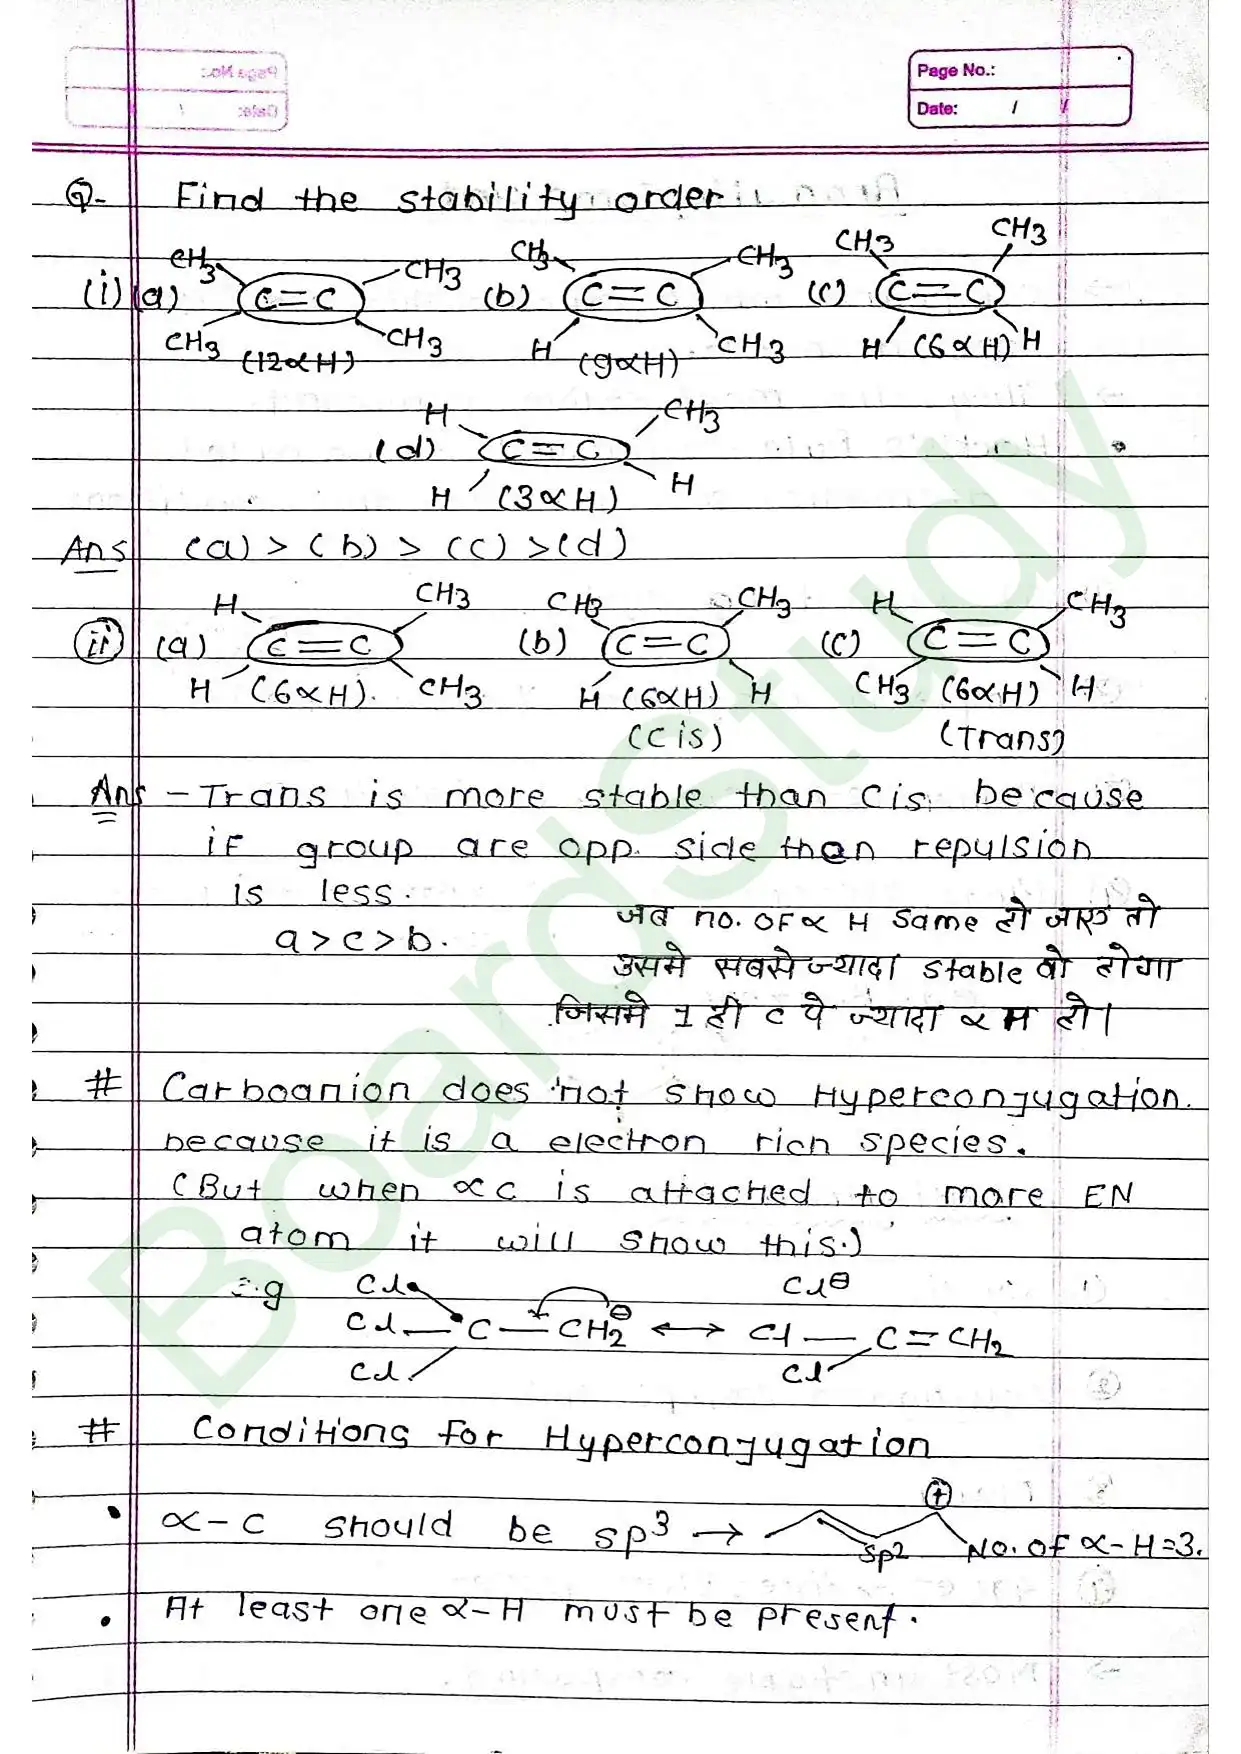 Page No.:
Date: / /
Q- Find the stability order
(i) (a) CH3 CH3 C=C CH3 CH3 (12αH) (b) CH3 CH3 C=C H CH3 (9αH) (c) CH3 CH3 C=C H H (6αH)
(d) H CH3 C=C H H (3αH)
Ans (a) > (b) > (c) > (d)
(ii) (a) H CH3 C=C H CH3 (6αH). (b) CH3 CH3 C=C H H (6αH) (c) H CH3 C=C CH3 H (6αH)
(Cis) (Trans)
Ans - Trans is more stable than Cis because
if group are opp. side than repulsion
is less.
a > c > b.
जब no. of α H same हो जाए तो
उसमे सबसे ज्यादा stable वो होगा
जिसमे 1 ही C पे ज्यादा α H हो।
# Carboanion does not show Hyperconjugation.
because it is a electron rich species.
(But when α C is attached to more EN
atom it will show this.)
e.g Cl Cl Cl C — CH2 ⊖ ⟷ Cl⊖ Cl — C = CH2 Cl
# Conditions for Hyperconjugation
• α-C should be sp3 → sp2 ⊕ No. of α-H=3.
• At least one α-H must be present.
BoardStudy